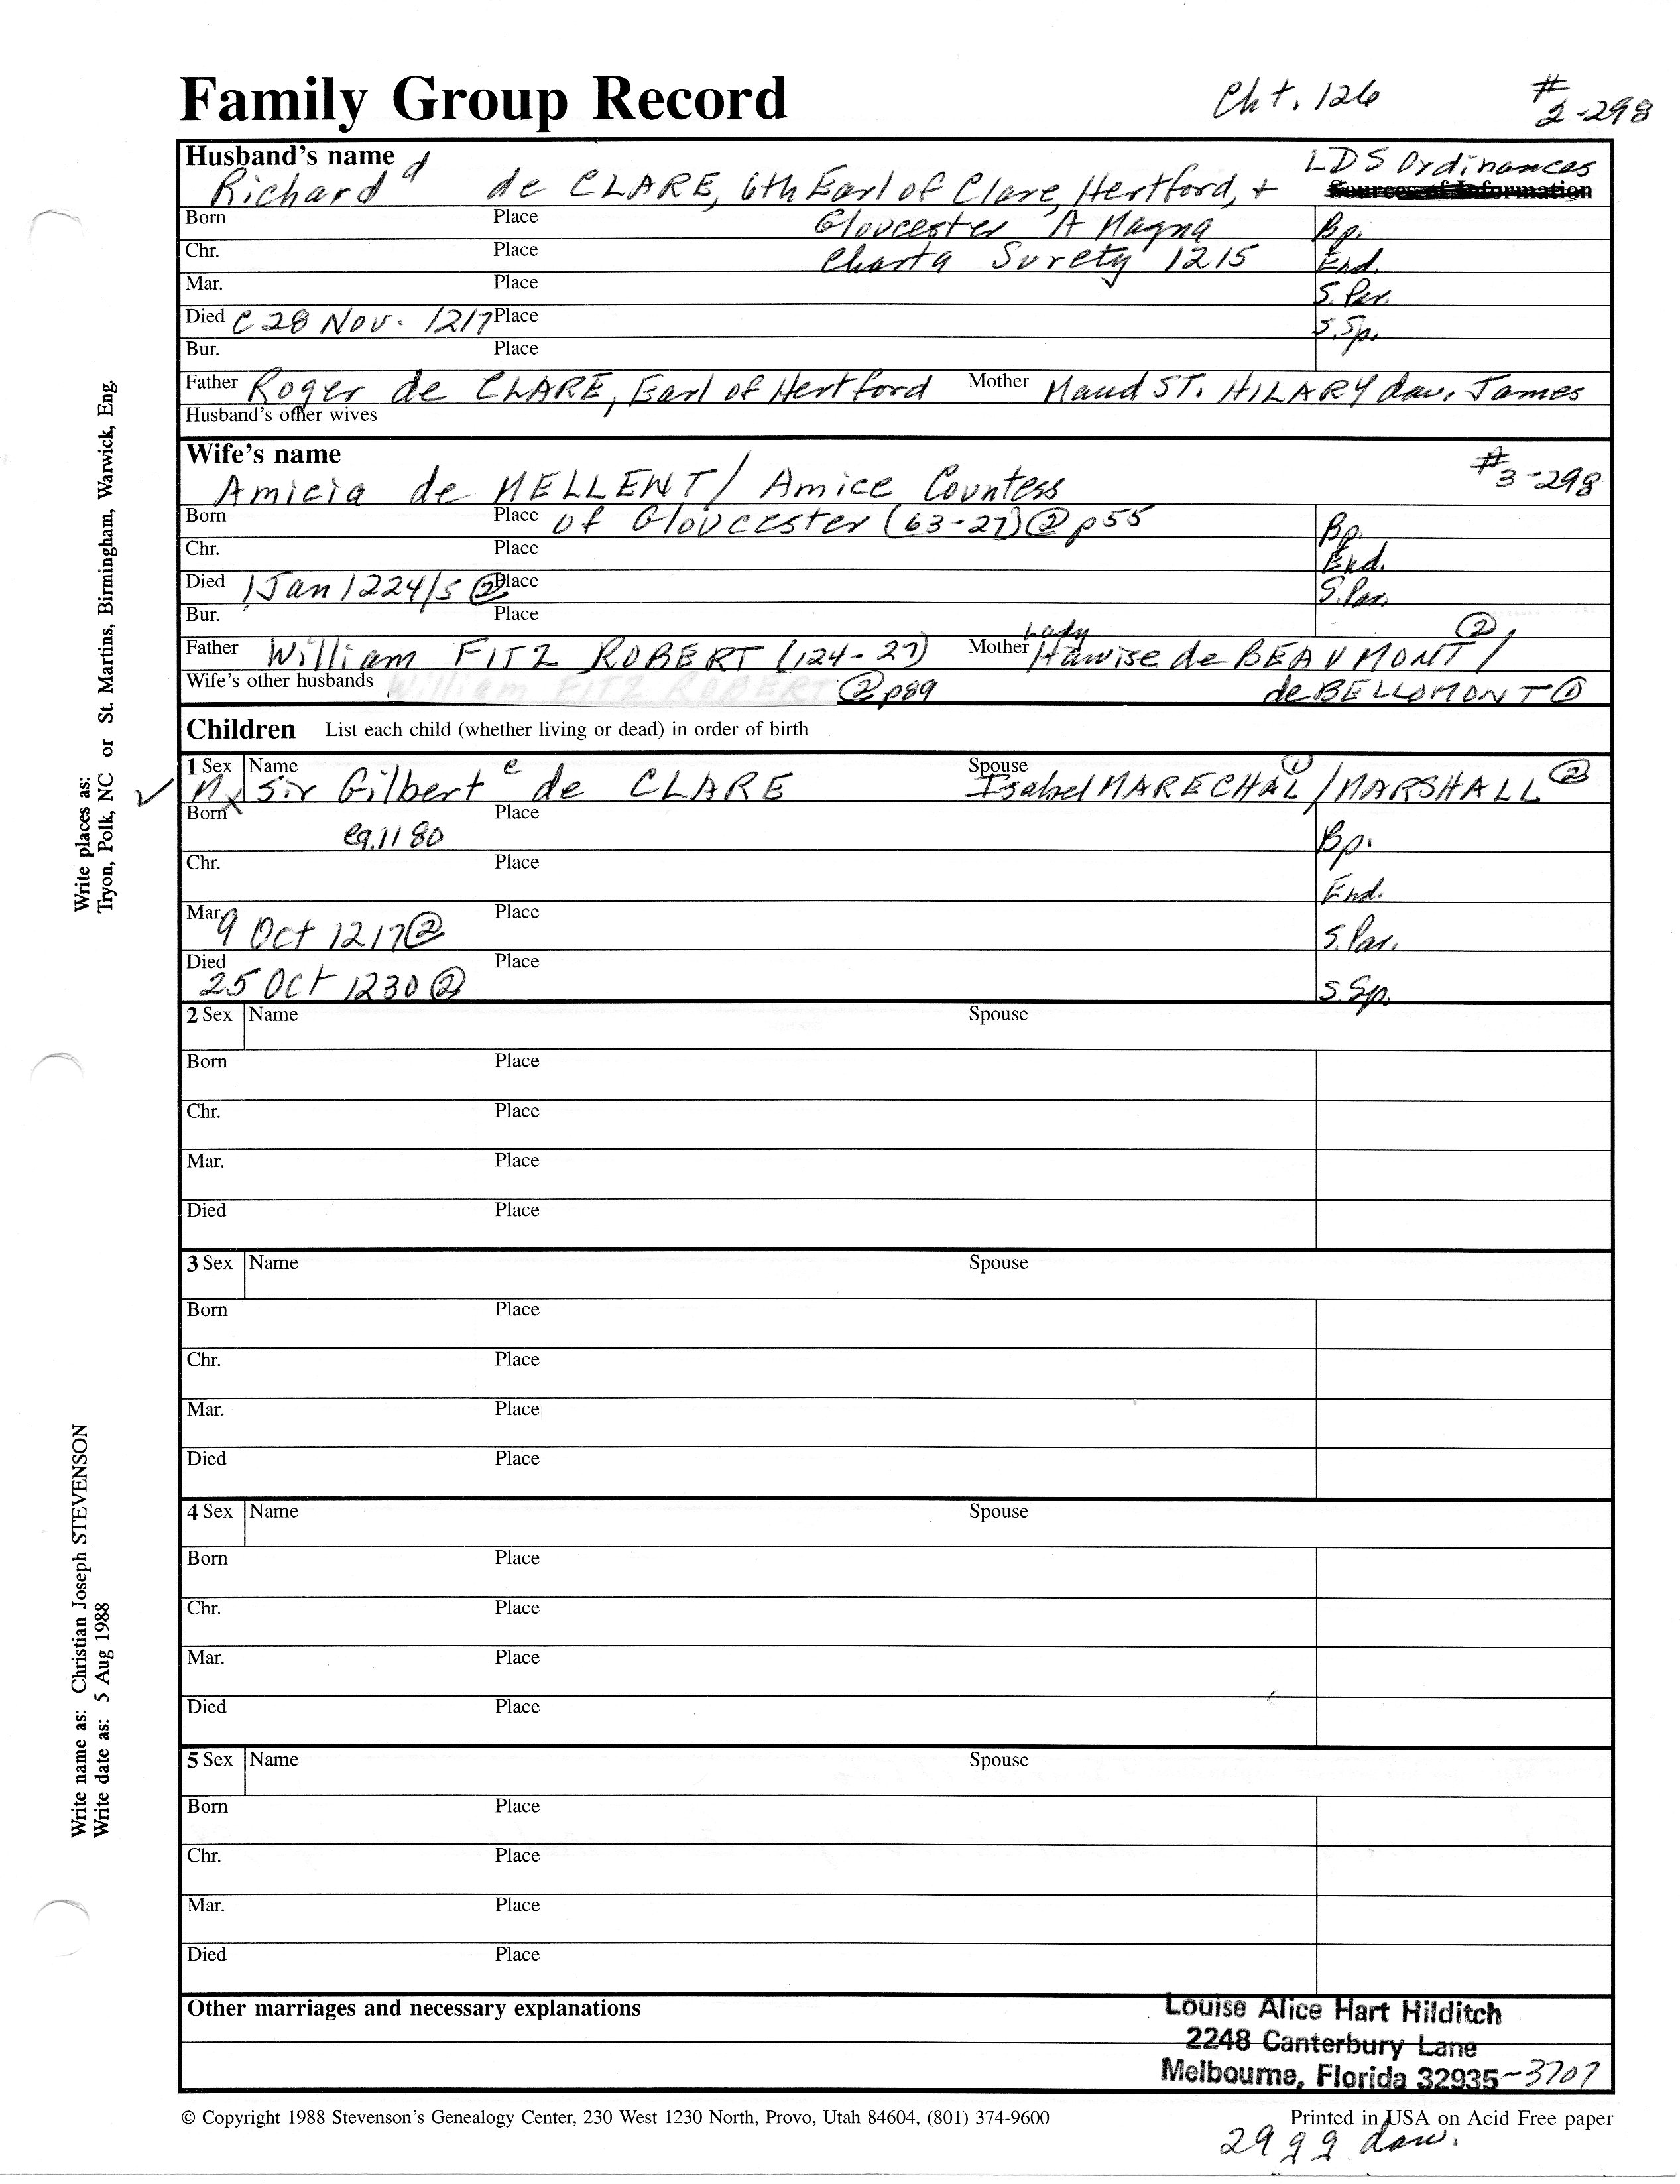 Family Group Record Cht. 126 # 2-298
Husband's name LDS Ordinances
Richard d de CLARE, 6th Earl of Clare, Hertford, + Sources of Information
Born Place Gloucester A Magna Bp.
Chr. Place Charta Surety 1215 End.
Mar. Place S. Par.
Died C 28 Nov. 1217 Place S. Sp.
Bur. Place
Father Roger de CLARE, Earl of Hertford Mother Maud ST. HILARY dau. James
Husband's other wives
Wife's name #3-298
Amicia de MELLENT / Amice Countess
Born Place of Gloucester (63-27) ② p55 Bp.
Chr. Place End.
Died 1 Jan 1224/5 ② Place S. Par.
Bur. Place
Father William FITZ ROBERT (124-27) Mother Lady Hawise de BEAUMONT ② /
Wife's other husbands William FITZ ROBERT ② p89 de BELLOMONT ①
Children List each child (whether living or dead) in order of birth
1 Sex Name Spouse
M x Sir Gilbert e de CLARE Isabel MARECHAL ① / MARSHALL ②
Born ca. 1180 Place Bp.
Chr. Place End.
Mar. 9 Oct 1217 ② Place S. Par.
Died 25 Oct 1230 ② Place S. Sp.
2 Sex Name Spouse
Born Place
Chr. Place
Mar. Place
Died Place
3 Sex Name Spouse
Born Place
Chr. Place
Mar. Place
Died Place
4 Sex Name Spouse
Born Place
Chr. Place
Mar. Place
Died Place
5 Sex Name Spouse
Born Place
Chr. Place
Mar. Place
Died Place
Other marriages and necessary explanations
Louise Alice Hart Hilditch
2248 Canterbury Lane
Melbourne, Florida 32935-3707
© Copyright 1988 Stevenson's Genealogy Center, 230 West 1230 North, Provo, Utah 84604, (801) 374-9600 Printed in USA on Acid Free paper
29 g g dau.
Write places as:
Tryon, Polk, NC or St. Martins, Birmingham, Warwick, Eng.
Write name as: Christian Joseph STEVENSON
Write date as: 5 Aug 1988